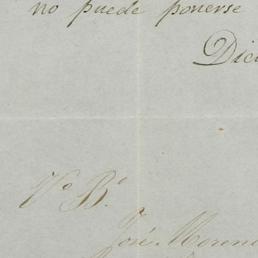 no puede ponerse
V.º B.º
José Moreno